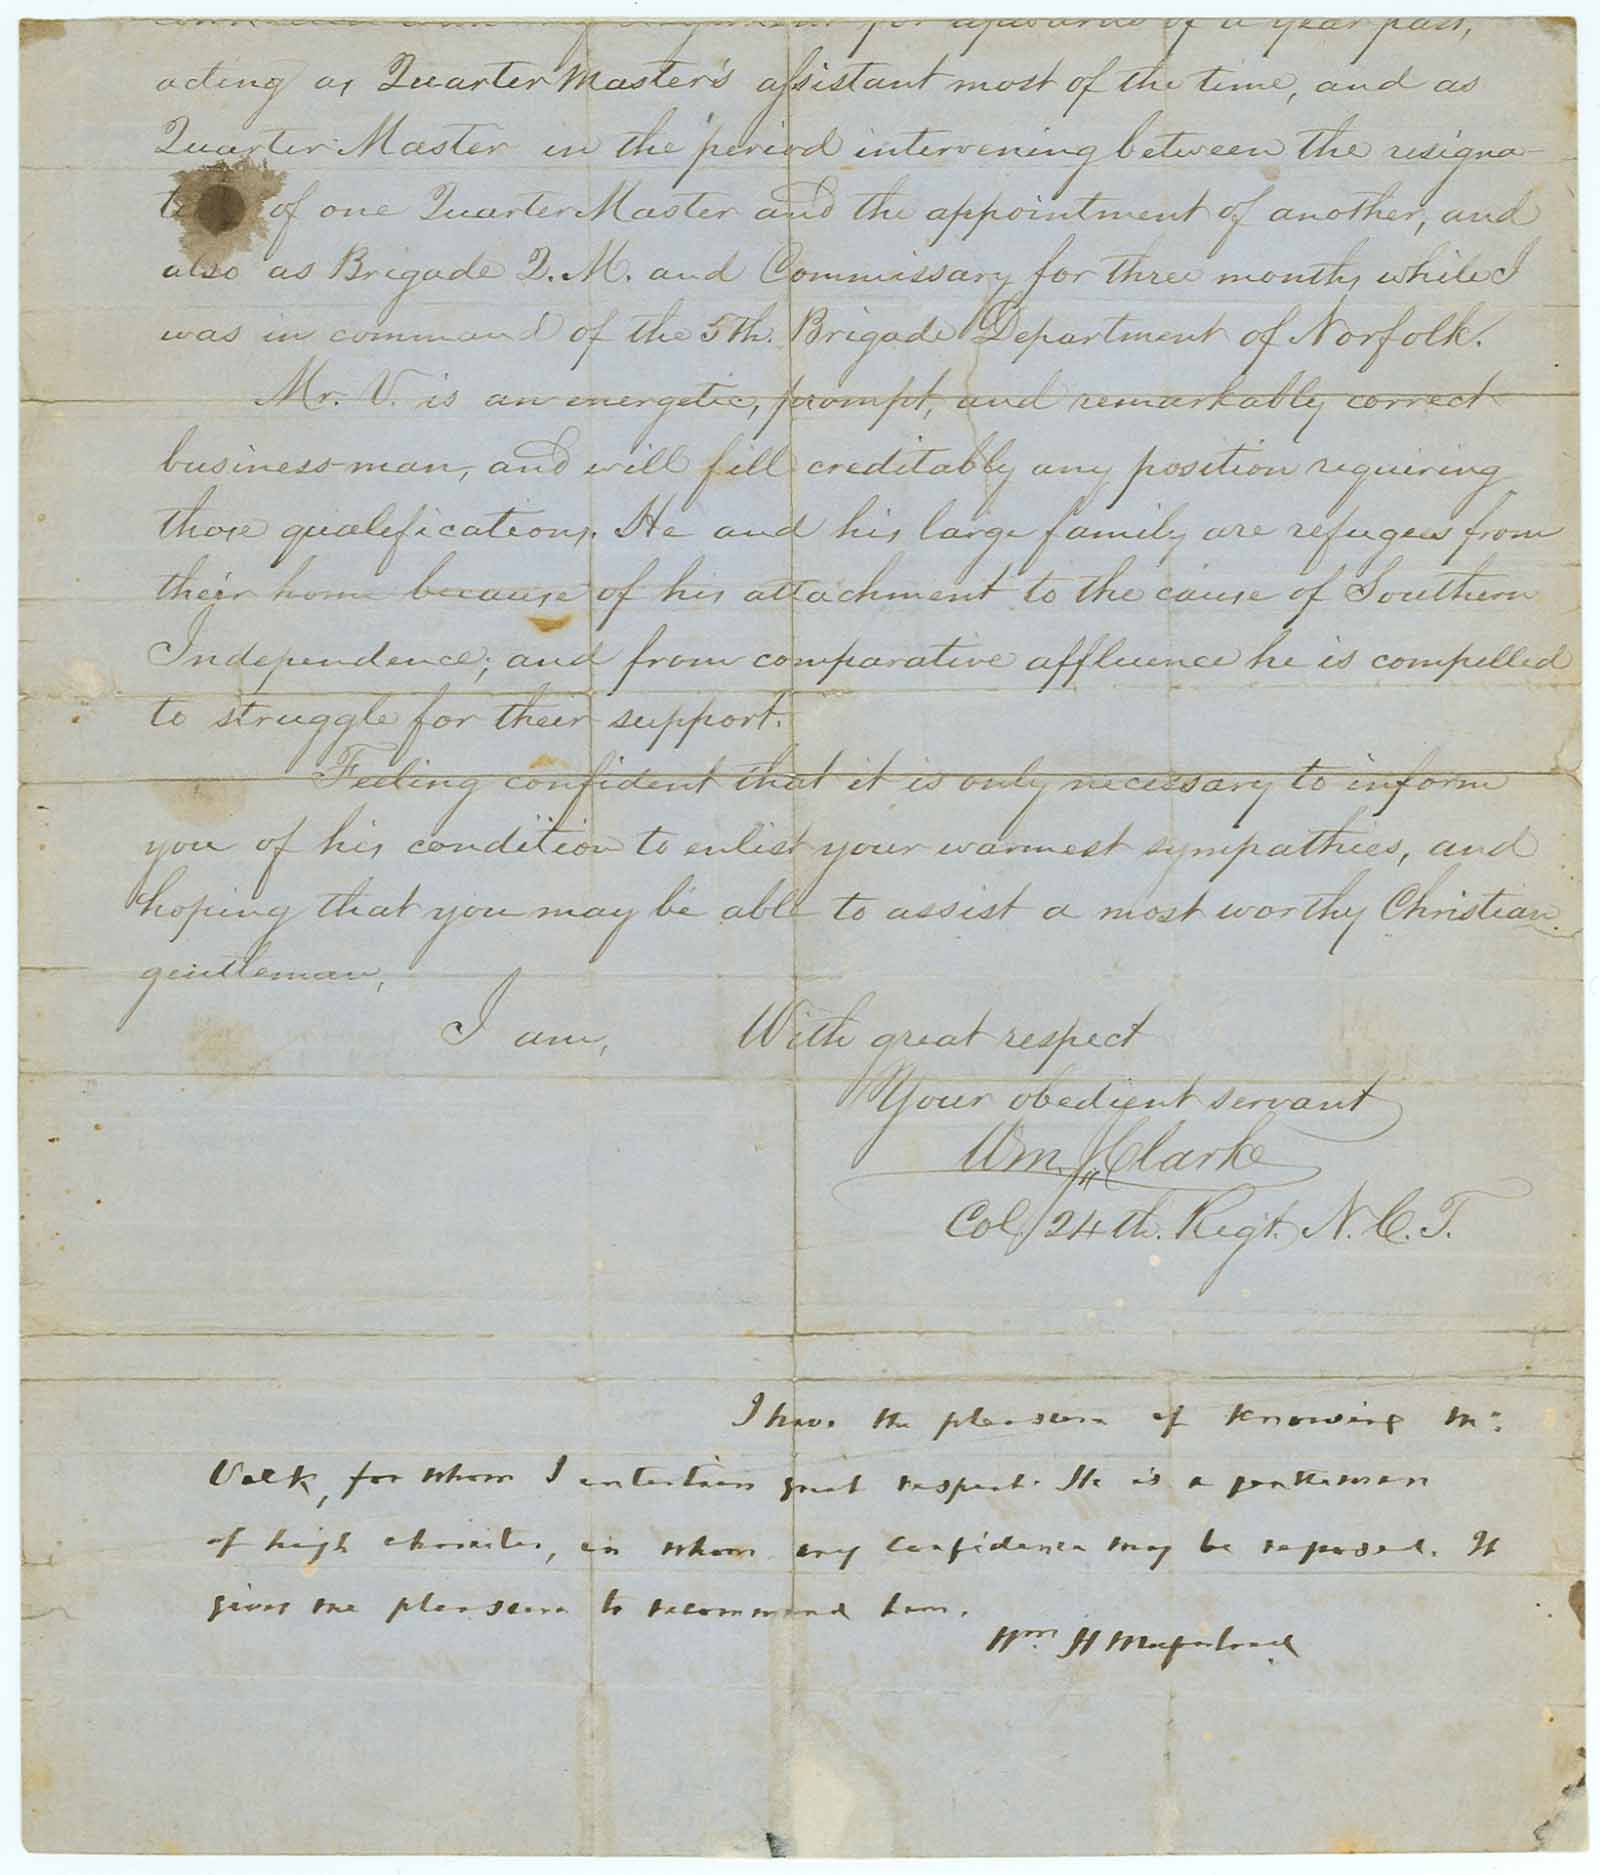 connected with my regiment for upwards of a year past,
acting as QuarterMaster's assistant most of the time, and as
Quarter-Master in the period intervening between the resigna-
of one QuarterMaster and the appointment of another, and
also as Brigade Q.M. and Commissary for three months while I
was in command of the 5th. Brigade Department of Norfolk.
Mr. V. is an energetic, prompt, and remarkably correct
business-man, and will fill creditably any position requiring
those qualifications. He and his large family are refugees from
their home because of his attachment to the cause of Southern
Independence; and from comparative affluence he is compelled
to struggle for their support.
Feeling confident that it is only necessary to inform
you of his condition to enlist your warmest sympathies, and
hoping that you may be able to assist a most worthy Christian
gentleman,
I am, With great respect
Your obedient servant
Wm. J. Clarke
Col. 24th. Regt. N.C.T.
I have the pleasure of knowing Mr.
Valk, for whom I entertain great respect. He is a gentleman
of high character, in whom any confidence may be reposed. It
gives me pleasure to recommend him.
Wm H Macfarland